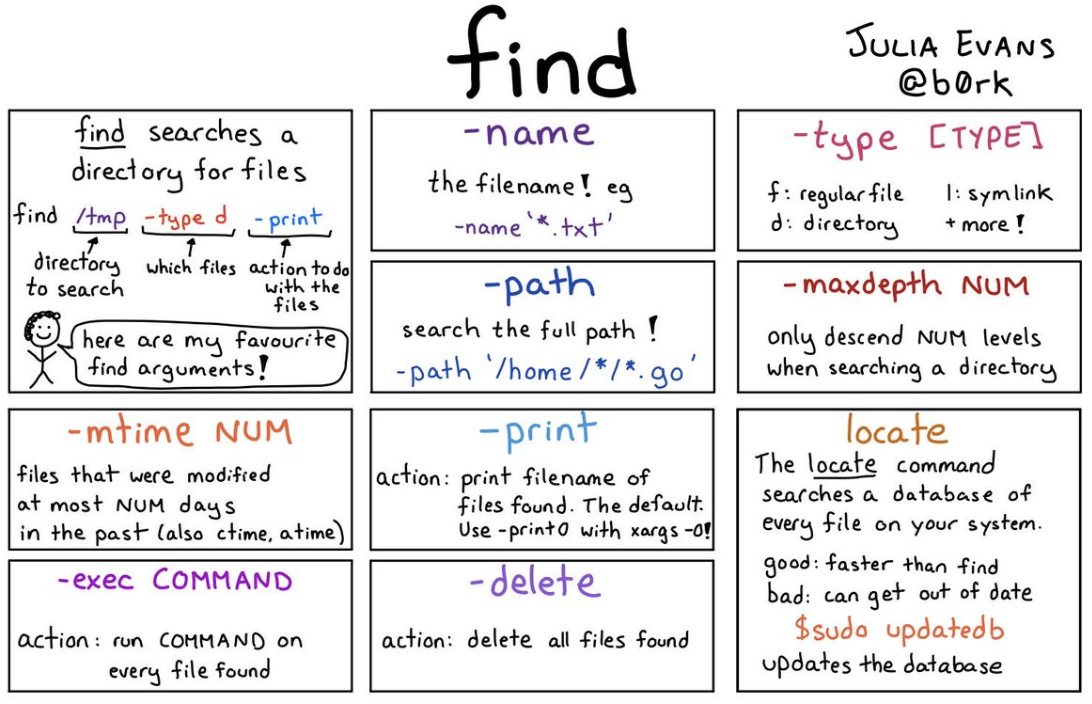 find
JULIA EVANS
@b0rk
find searches a
directory for files
find /tmp -type d -print
directory
to search
which files
action to do
with the
files
here are my favourite
find arguments!
-name
the filename! eg
-name '*.txt'
-type [TYPE]
f: regular file l: symlink
d: directory + more!
-path
search the full path!
-path '/home/*/*.go'
-maxdepth NUM
only descend NUM levels
when searching a directory
-mtime NUM
files that were modified
at most NUM days
in the past (also ctime, atime)
-print
action: print filename of
files found. The default.
Use -print0 with xargs -0!
locate
The locate command
searches a database of
every file on your system.
good: faster than find
bad: can get out of date
$sudo updatedb
updates the database
-exec COMMAND
action: run COMMAND on
every file found
-delete
action: delete all files found